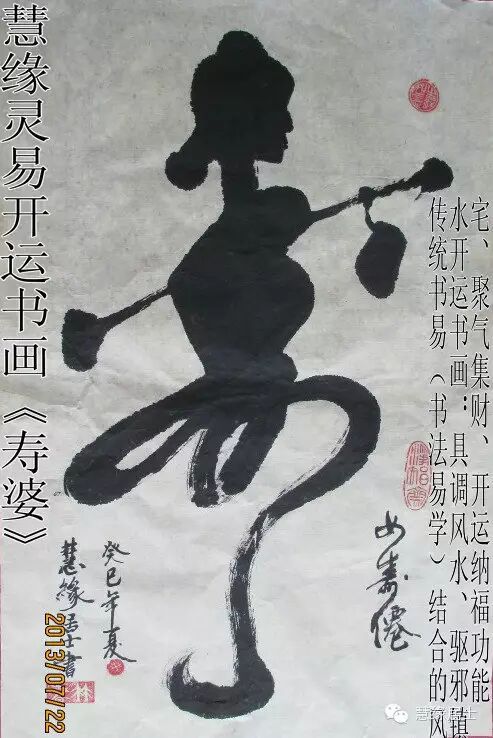 慧缘灵易开运书画《寿婆》
传统书易（书法易学）结合的风
水开运书画：具调风水、驱邪镇
宅、聚气集财、开运纳福功能
女壽僊
癸巳年夏
慧緣居士書
林
2013/07/22
慧缘居士